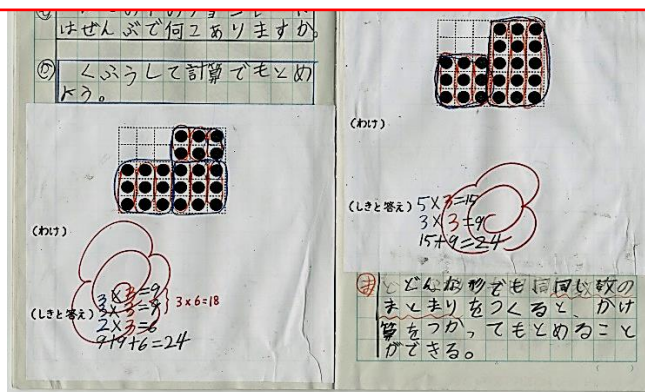 はぜんぶで何こありますか。
くふうして計算でもとめ
よう。
(わけ)
3×3=9
3×3=9
3×6=18
(しきと答え)
2×3=6
9+9+6=24
(わけ)
(しきと答え)
5×3=15
3×3=9
15+9=24
ま
どんな形でも同じ数の
まとまりをつくると、かけ
算をつかってもとめること
ができる。